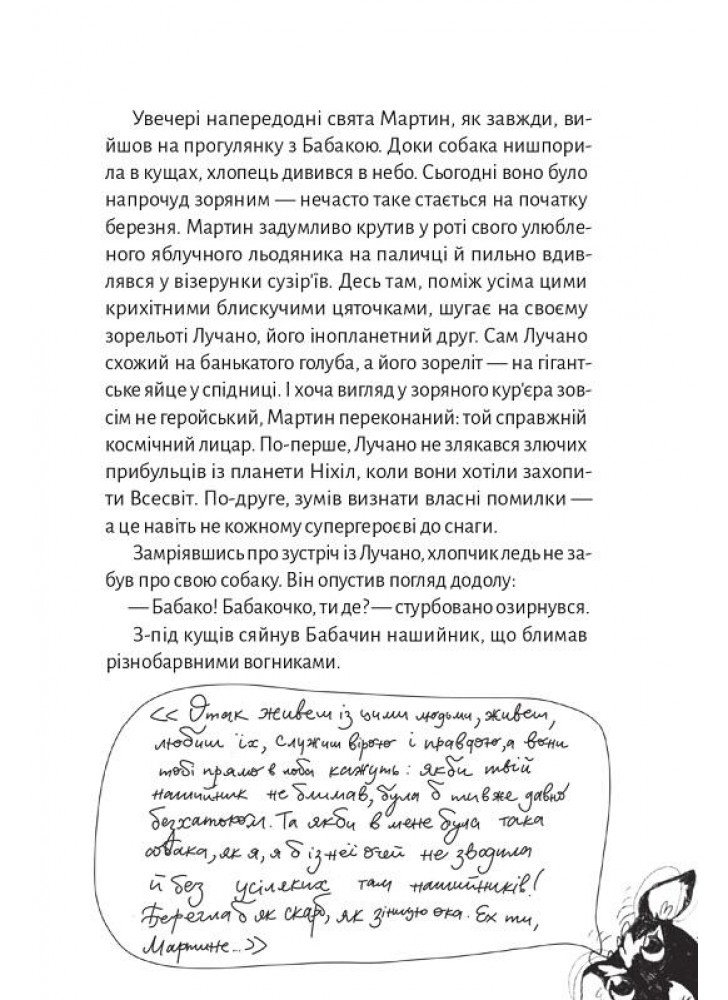 Увечері напередодні свята Мартин, як завжди, ви-
йшов на прогулянку з Бабакою. Доки собака нишпори-
ла в кущах, хлопець дивився в небо. Сьогодні воно було
напрочуд зоряним — нечасто таке стається на початку
березня. Мартин задумливо крутив у роті свого улюбле-
ного яблучного льодяника на паличці й пильно вдив-
лявся у візерунки сузір'їв. Десь там, поміж усіма цими
крихітними блискучими цяточками, шугає на своєму
зорельоті Лучано, його інопланетний друг. Сам Лучано
схожий на банькатого голуба, а його зореліт — на гігант-
ське яйце у спідниці. І хоча вигляд у зоряного кур'єра зов-
сім не геройський, Мартин переконаний: той справжній
космічний лицар. По-перше, Лучано не злякався злючих
прибульців із планети Ніхіл, коли вони хотіли захопи-
ти Всесвіт. По-друге, зумів визнати власні помилки —
а це навіть не кожному супергероєві до снаги.
Замріявшись про зустріч із Лучано, хлопчик ледь не за-
був про свою собаку. Він опустив погляд додолу:
— Бабако! Бабакочко, ти де? — стурбовано озирнувся.
З-під кущів сяйнув Бабачин нашийник, що блимав
різнобарвними вогниками.
«Отак живеш із цими людьми, живеш,
любиш їх, служиш вірою і правдою, а вони
тобі прямо в лоба кажуть: якби твій
нашийник не блимав, була б ти вже давно
безхатьком. Та якби в мене була така
собака, як я, я б із неї очей не зводила
й без усіляких там нашийників!
Берегла б як скарб, як зіницю ока. Ех ти,
Мартине...»